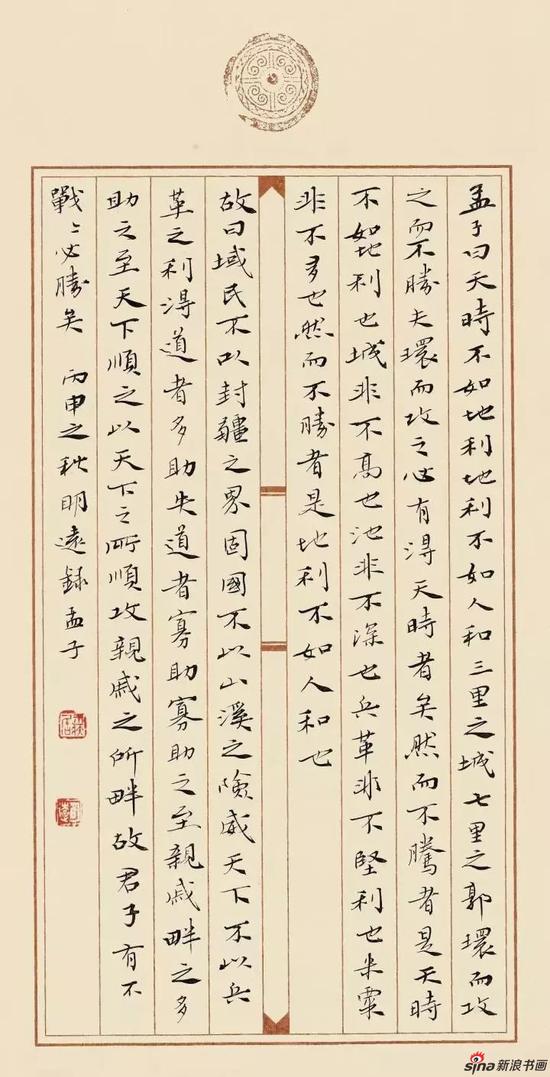 孟子曰天時不如地利地利不如人和三里之城七里之郭環而攻
之而不勝夫環而攻之必有得天時者矣然而不騰者是天時
不如地利也城非不高也池非不深也兵革非不堅利也米粟
非不多也然而不勝者是地利不如人和也
故曰域民不以封疆之界固國不以山溪之險威天下不以兵
革之利得道者多助失道者寡助寡助之至親戚畔之多
助之至天下順之以天下之所順攻親戚之所畔故君子有不
戰〻必勝矣 丙申之秋明遠錄孟子
sina新浪书画